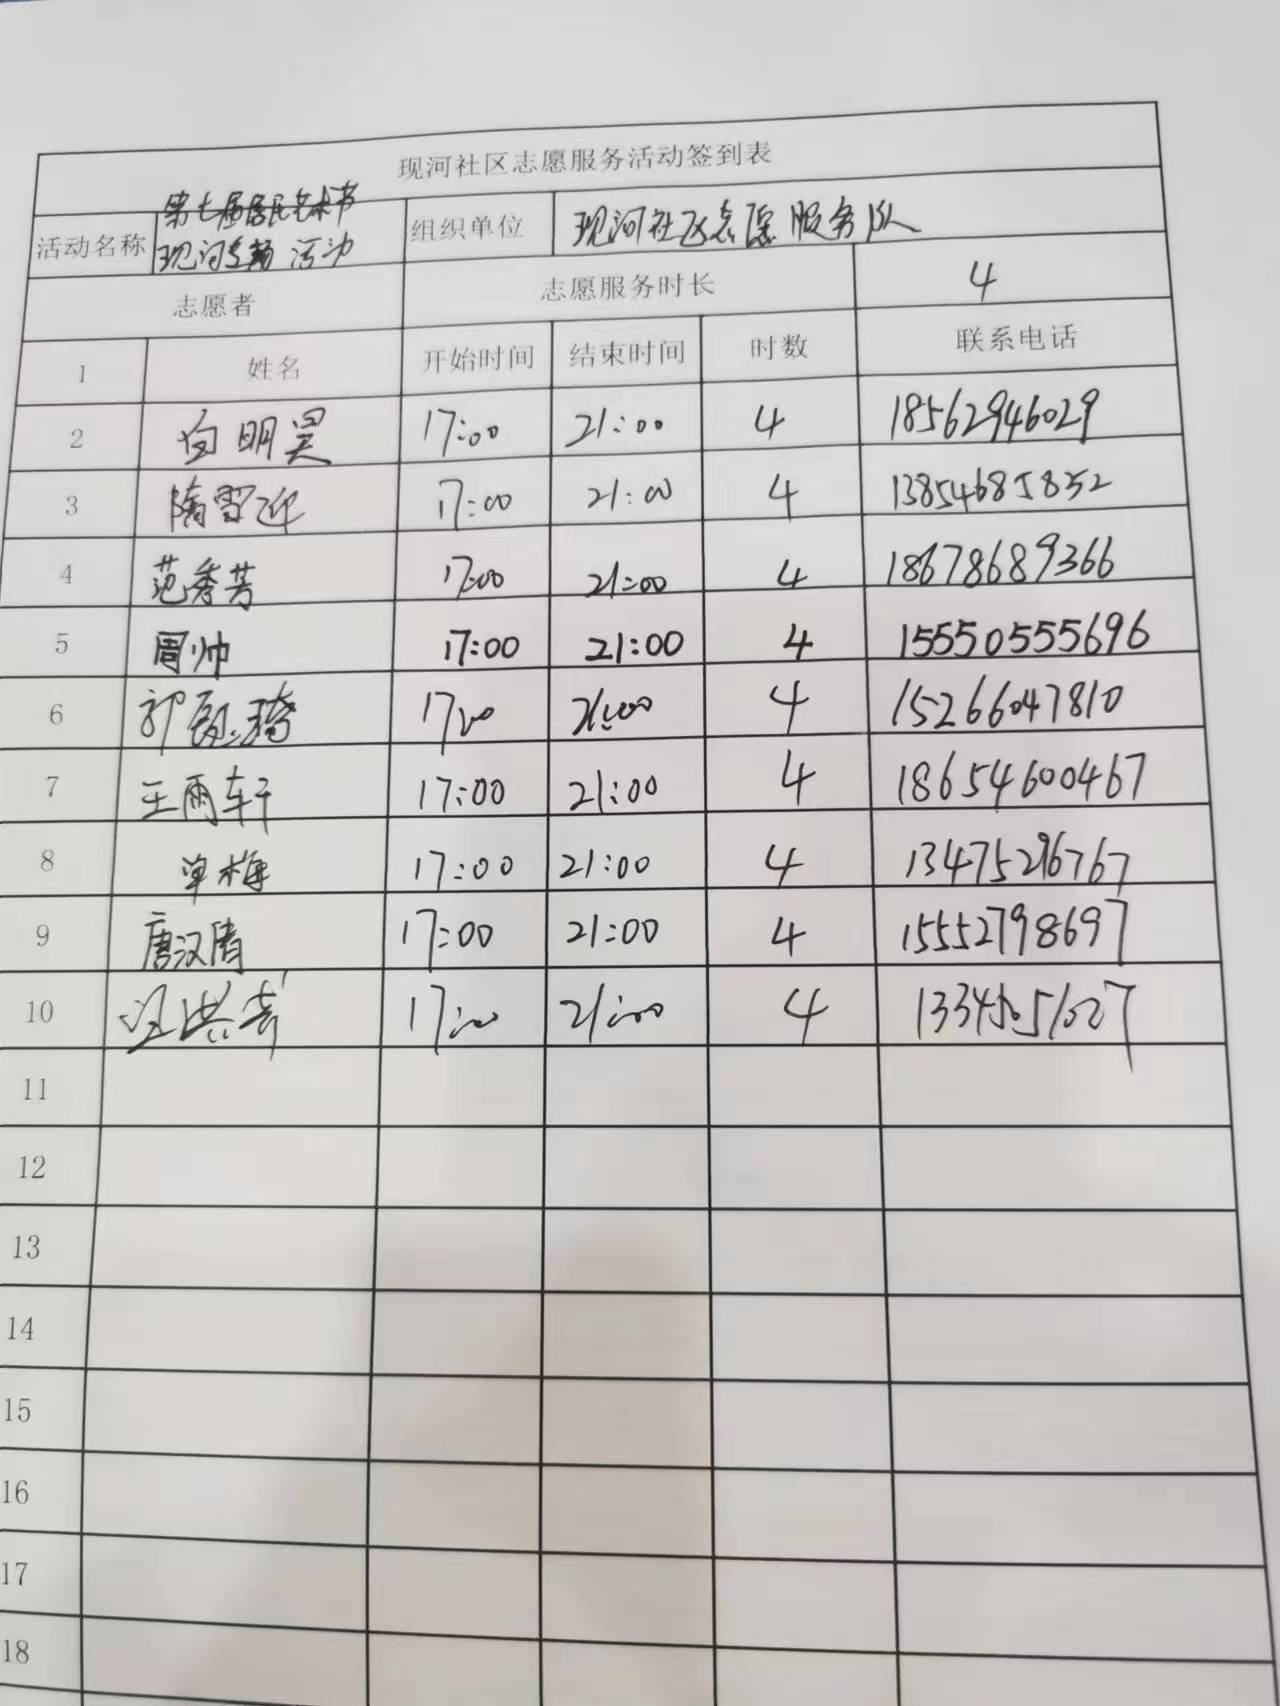 现河社区志愿服务活动签到表
活动名称 第七届居民艺术节 现河专场 活动 组织单位 现河社区志愿服务队
志愿者 志愿服务时长 4
1 姓名 开始时间 结束时间 时数 联系电话
2 向明昊 17:00 21:00 4 18562946029
3 隋雪迎 17:00 21:00 4 13854685852
4 范秀芳 17:00 21:00 4 18678689366
5 周帅 17:00 21:00 4 15550555696
6 17:00 21:00 4 15266047810
7 王雨轩 17:00 21:00 4 18654600467
8 单梅 17:00 21:00 4 13475296767
9 唐汉清 17:00 21:00 4 15552798697
10 17:00 21:00 4
11
12
13
14
15
16
17
18